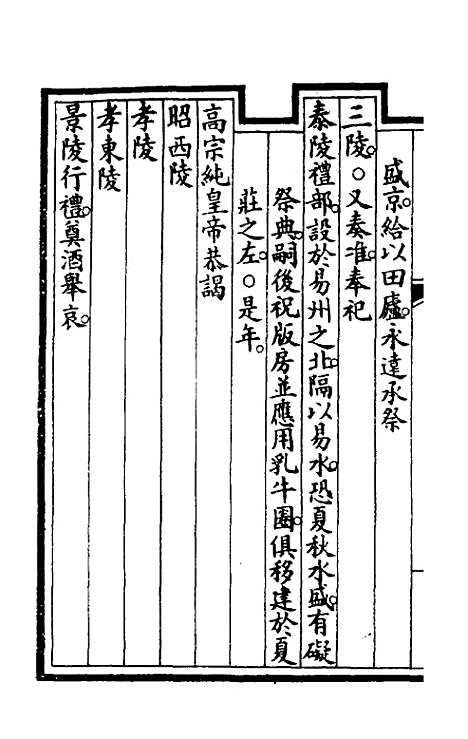 盛京。給以田廬。永遠承祭
三陵。○又奏准。奉祀
泰陵禮部。設於易州之北。隔以易水。恐夏秋水盛。有礙
祭典。嗣後祝版房並應用乳牛圈。俱移建於夏
莊之左。○是年。
高宗純皇帝恭謁
昭西陵
孝陵
孝東陵
景陵行禮。奠酒舉哀。